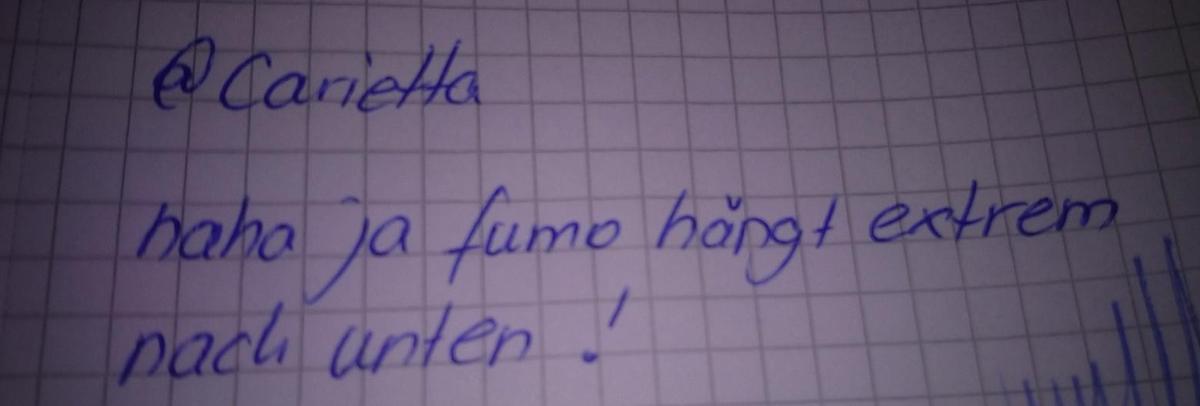 @Carietta
haha ja fumo hängt extrem
nach unten!